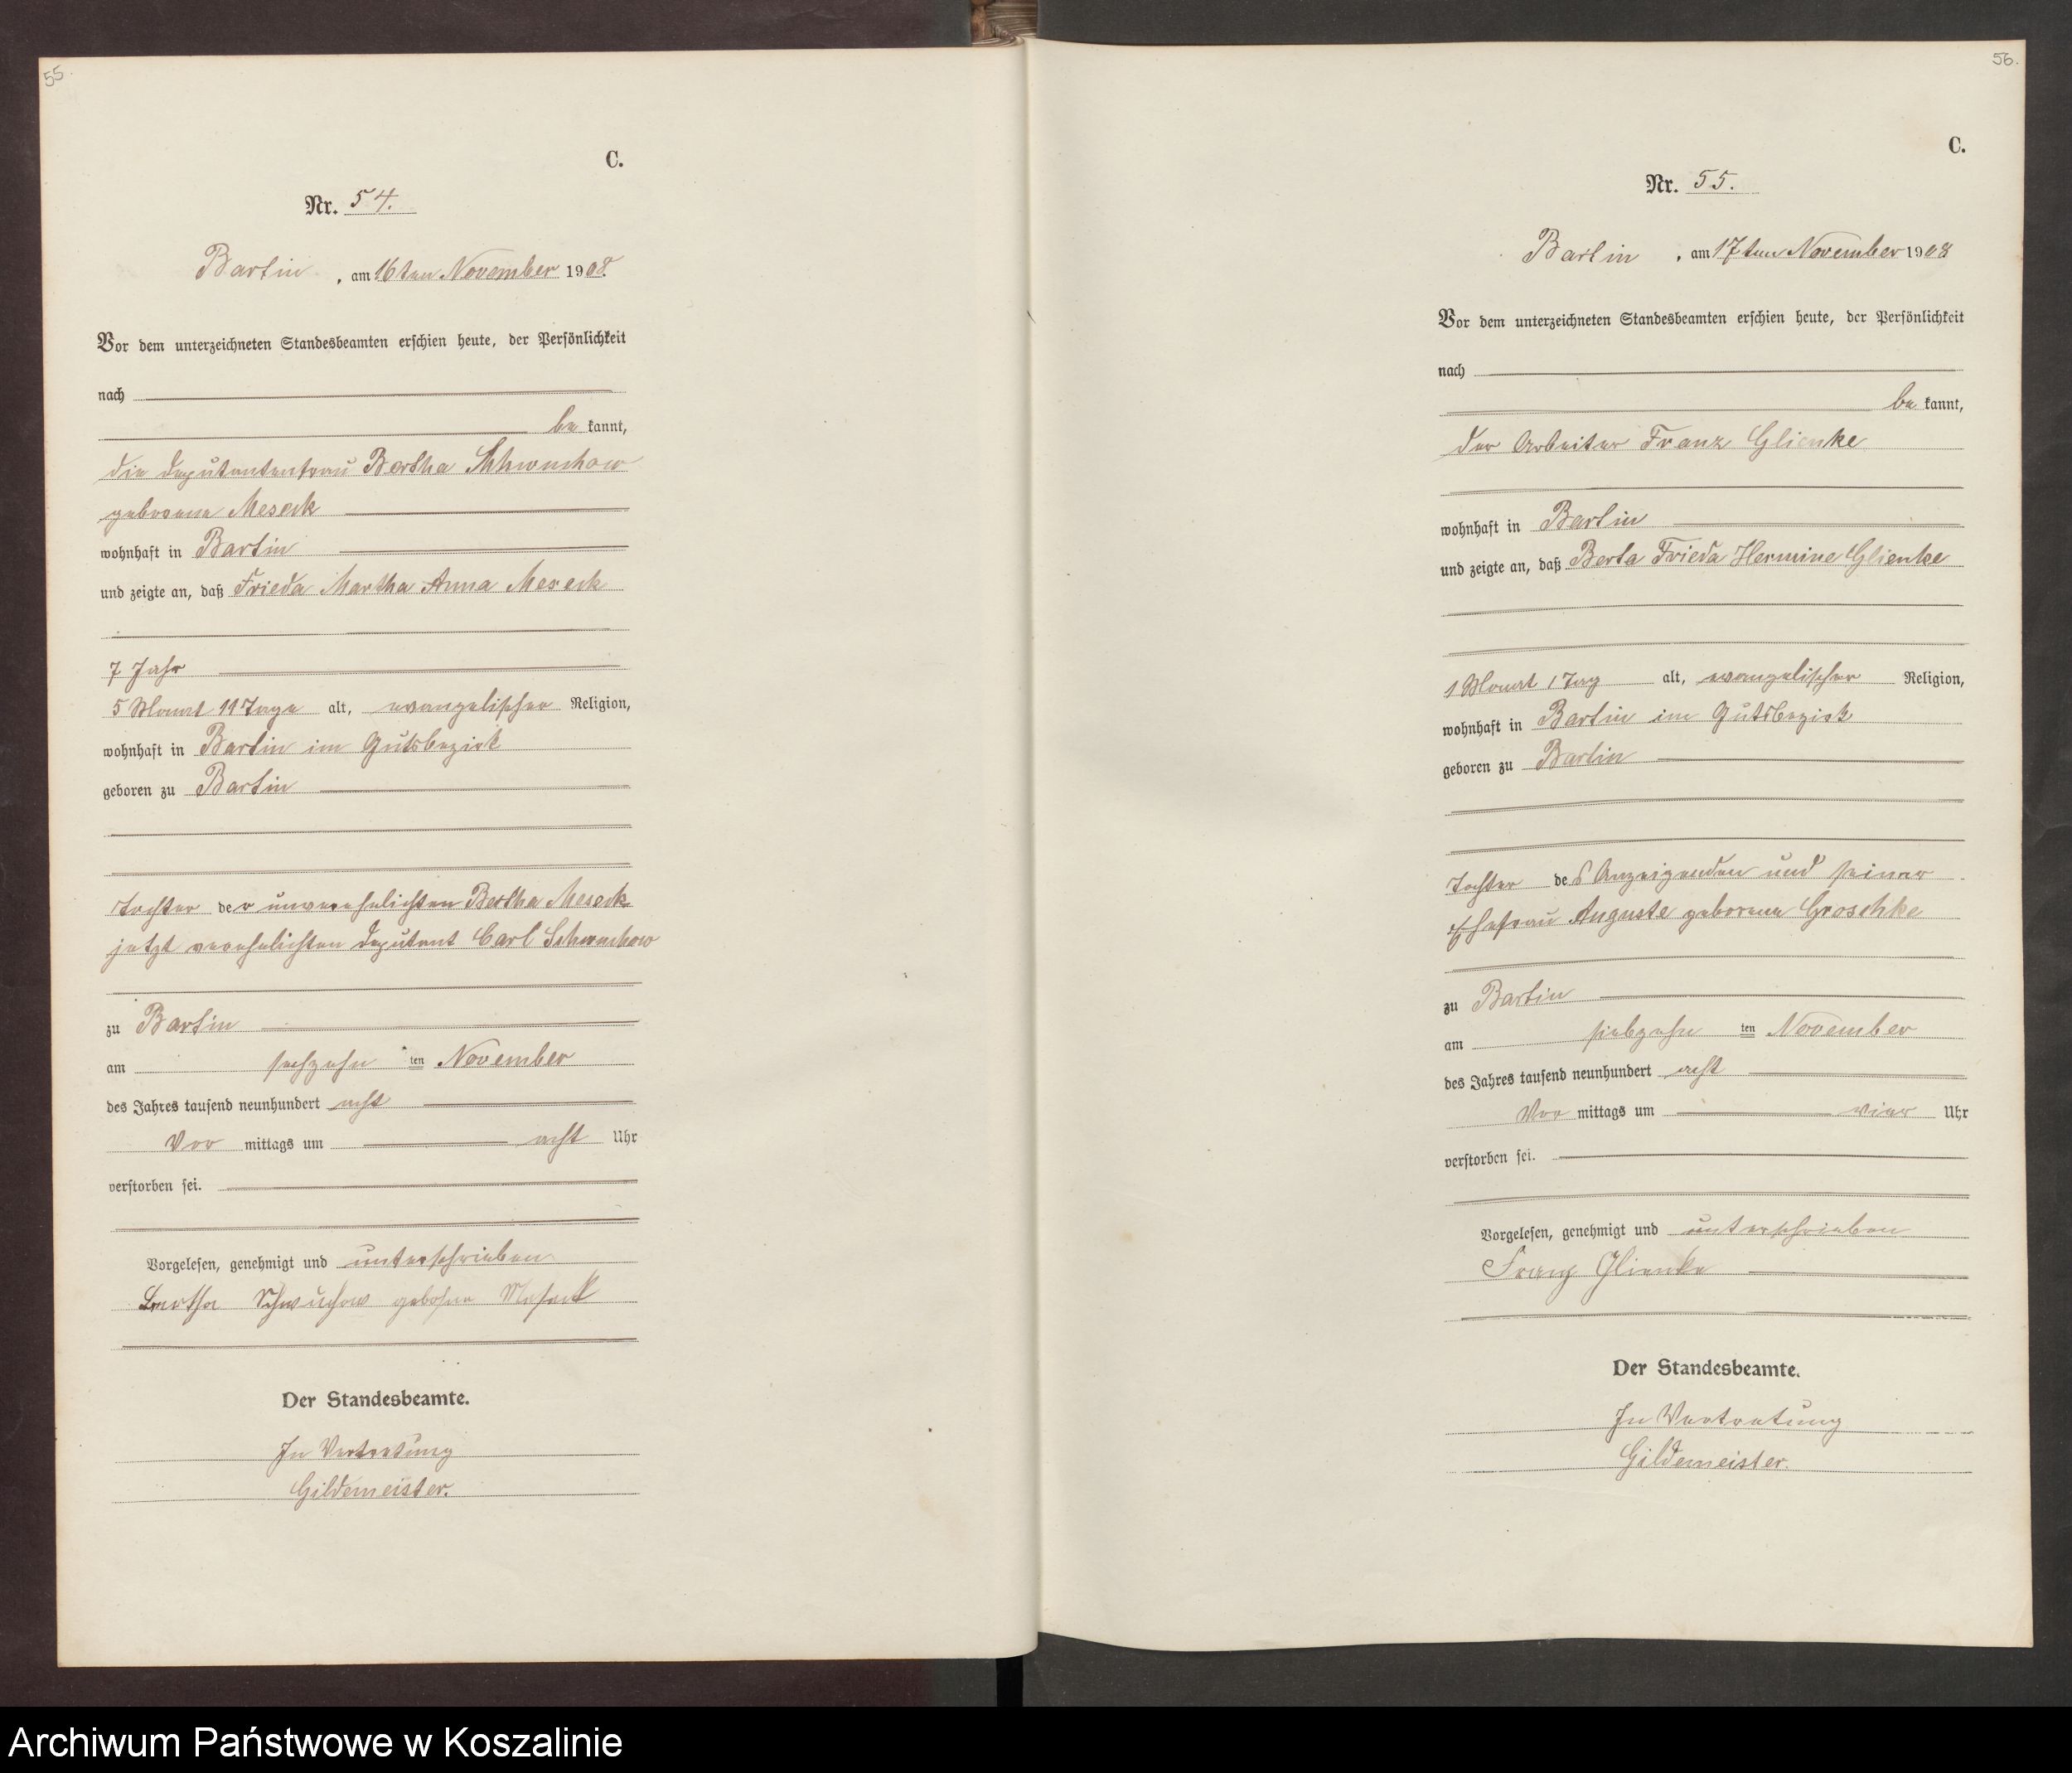 55.
C.
Nr. 54.
Bartin, am 16ten November 1908.
Vor dem unterzeichneten Standesbeamten erschien heute, der Persönlichkeit
nach
be kannt,
die Deputantenfrau Bertha Schwuchow
geborene Meseck
wohnhaft in Bartin
und zeigte an, daß Frieda Martha Anna Meseck
7 Jahr
5 Monat 11 Tage alt, evangelischer Religion,
wohnhaft in Bartin im Gutsbezirk
geboren zu Bartin
Tochter der unverehelichten Bertha Meseck
jetzt verehelichten Deputant Carl Schwuchow
zu Bartin
am sechzehn ten November
des Jahres tausend neunhundert acht
Vor mittags um acht Uhr
verstorben sei.
Vorgelesen, genehmigt und unterschrieben
Bertha Schwuchow geborne Meseck
Der Standesbeamte.
In Vertretung
Gildemeister.
56.
C.
Nr. 55.
Bartin, am 17ten November 1908
Vor dem unterzeichneten Standesbeamten erschien heute, der Persönlichkeit
nach
be kannt,
der Arbeiter Franz Glienke
wohnhaft in Bartin
und zeigte an, daß Berta Frieda Hermine Glienke
1 Monat 1 Tag alt, evangelischer Religion,
wohnhaft in Bartin im Gutsbezirk
geboren zu Bartin
Tochter des Anzeigenden und seiner
Ehefrau Auguste geborene Groschke
zu Bartin
am siebzehn ten November
des Jahres tausend neunhundert acht
Vor mittags um vier Uhr
verstorben sei.
Vorgelesen, genehmigt und unterschrieben
Franz Glienke
Der Standesbeamte.
In Vertretung
Gildemeister.
Archiwum Państwowe w Koszalinie